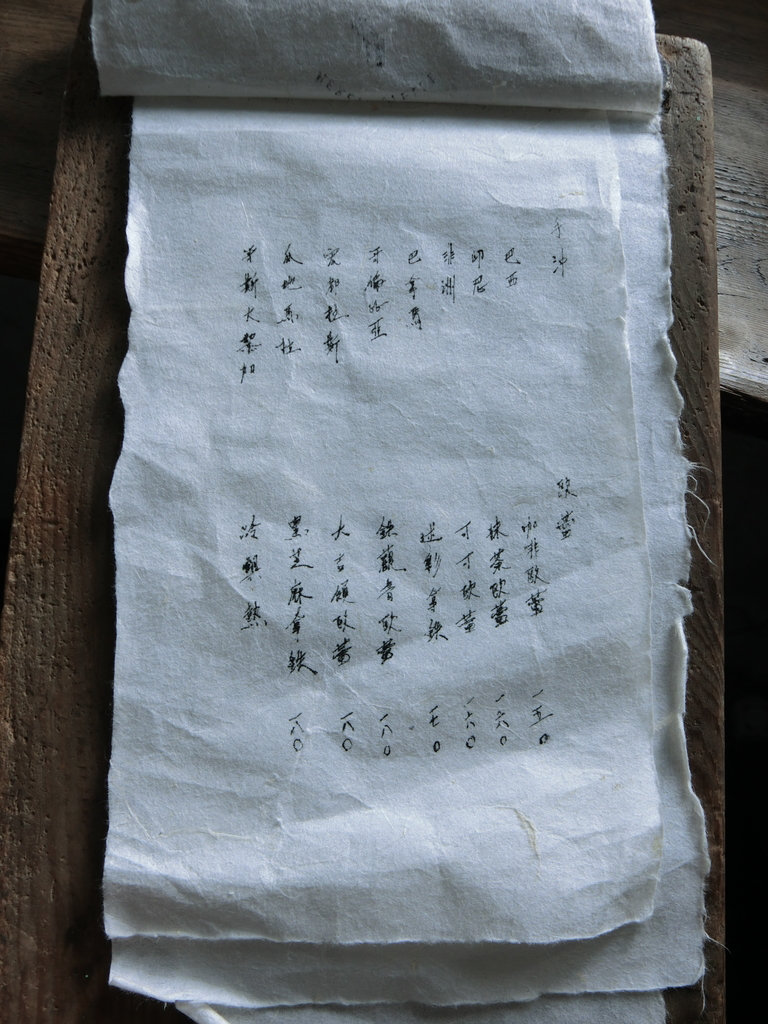 手冲
巴西
印尼
非洲
巴拿馬
哥倫比亞
宏都拉斯
瓜地馬拉
哥斯大黎加
歐蕾
咖啡歐蕾 一五0
抹茶歐蕾 一六0
可可歐蕾 一六0
迷彩拿鉄 一七0
鉄觀音歐蕾 一八0
大吉嶺歐蕾 一八0
黑芝麻拿鉄 一八0
冷熱